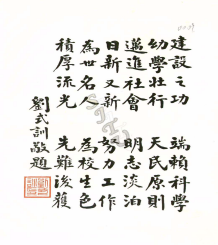 建設之功 端賴科學
幼學壯行 天民原則
邁進社會 明志淡泊
日新又新 努力工作
爲世名人 爲校生色
積厚流光 先難後獲
劉式訓敬題